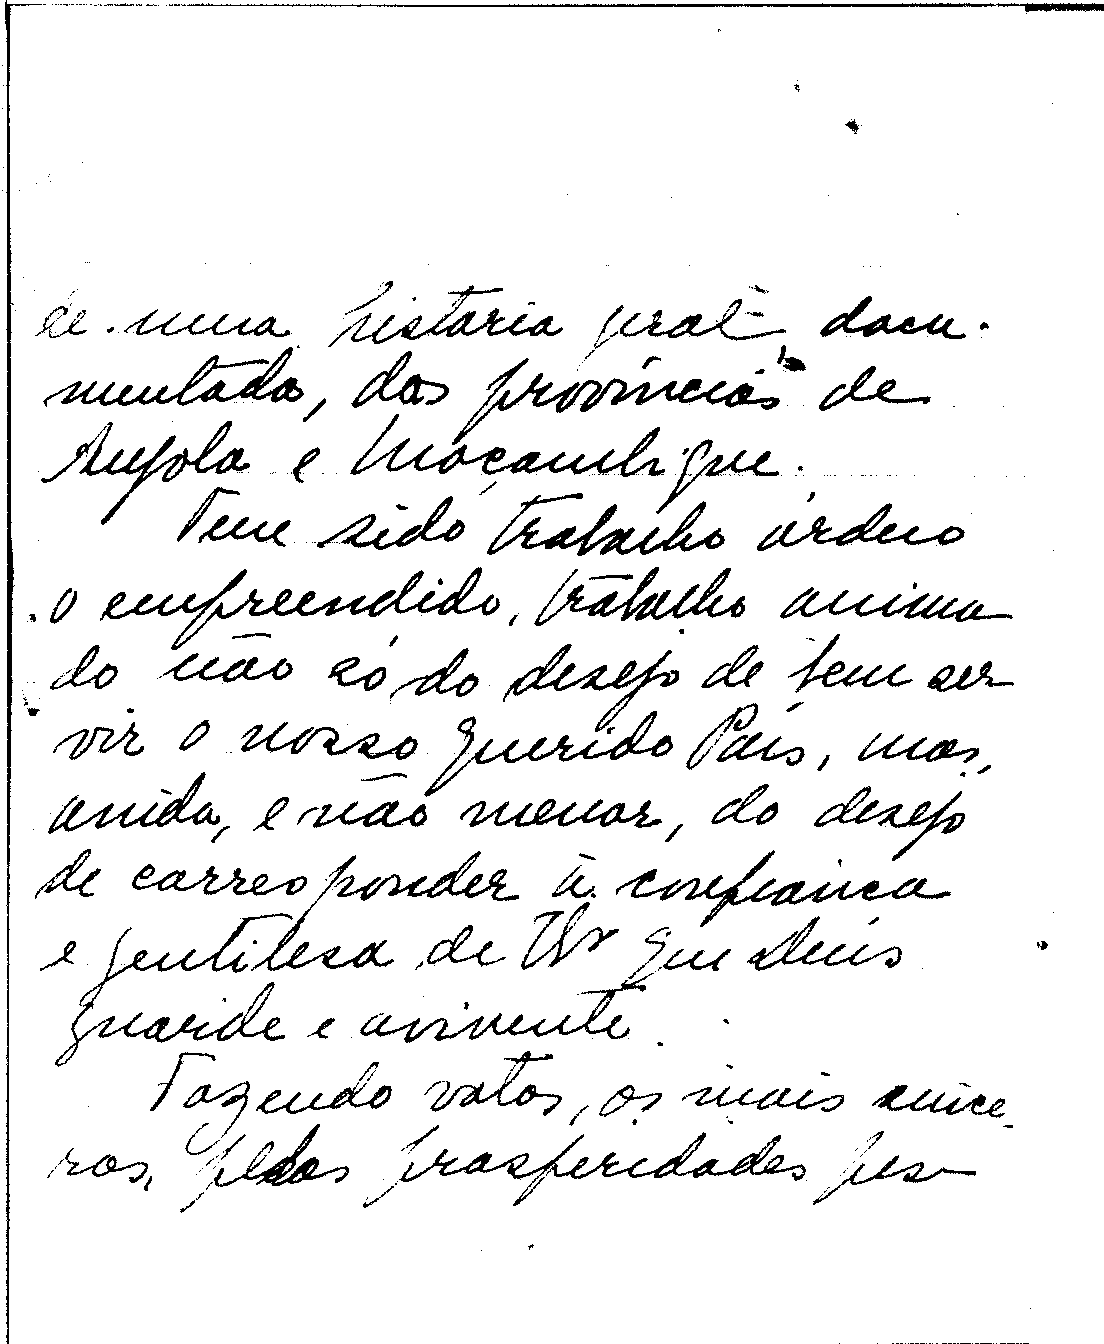 de uma historia geral, docu-
mentada, das províncias de
Angola e Moçambique.
Tem sido trabalho árduo
o empreendido, trabalho anima
do não só do desejo de bem ser
vir o nosso querido País, mas,
ainda, e não menor, do desejo
de corresponder à confiança
e gentilesa de que Deus
guarde e avivente.
Fazendo votos, os mais since
ros, pelas prosperidades pes-